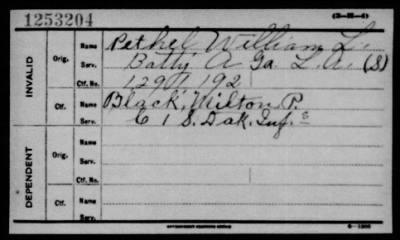 1253204 (3-M-4)
INVALID
Orig.
Name Pethel William L.
Serv. Batty A Ga. L.A. (S)
Ctf. No. 1291192
Ctf.
Name Black, Wilton P.
Serv. C 1 S. Dak. Inf.
DEPENDENT
Orig.
Name
Serv.
Ctf. No.
Ctf.
Name
Serv.